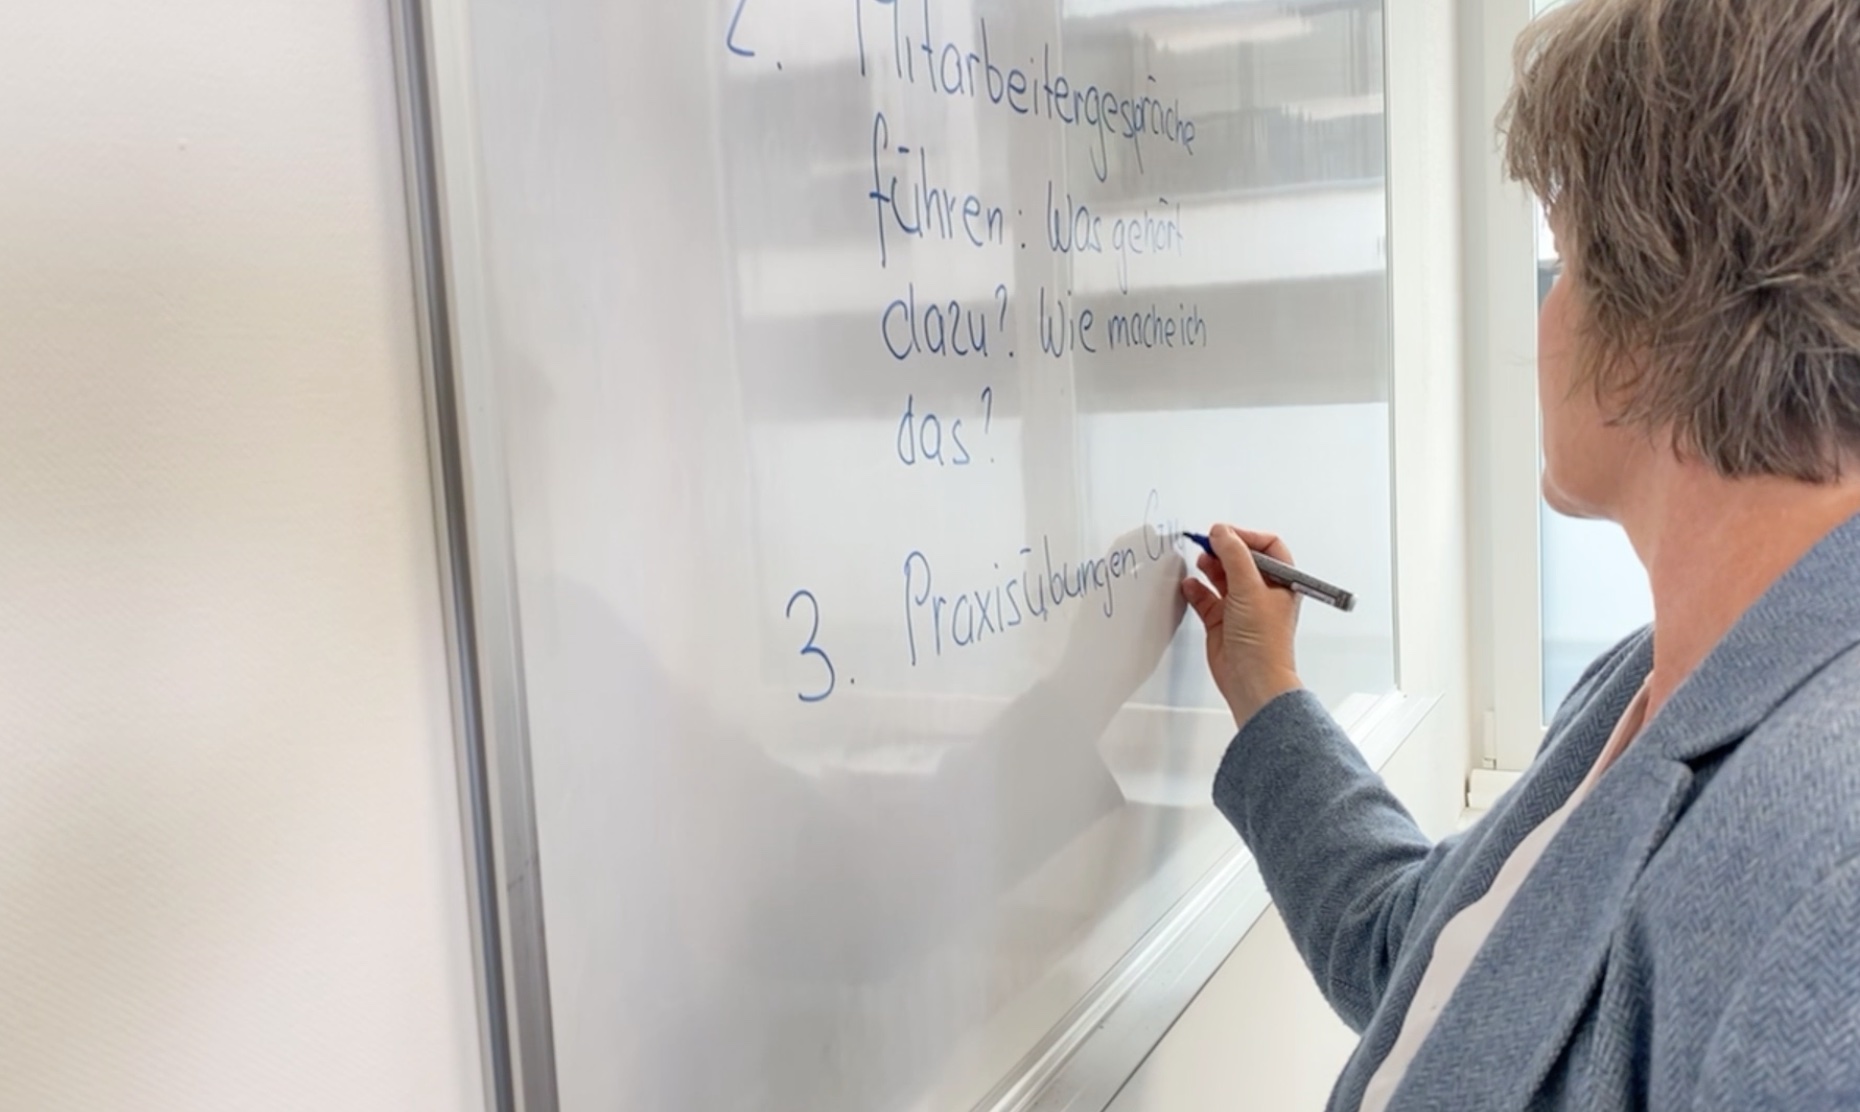 2. Mitarbeitergespräche
führen: Was gehört
dazu? Wie mache ich
das?
3. Praxisübungen